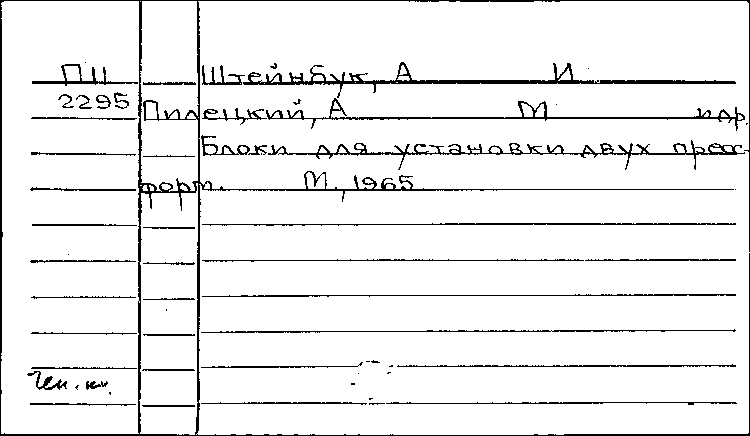 П11 Штейнбук, А И
2295 Пилецкий, А М и др.
Блоки для установки двух пресс-
форм. М., 1965